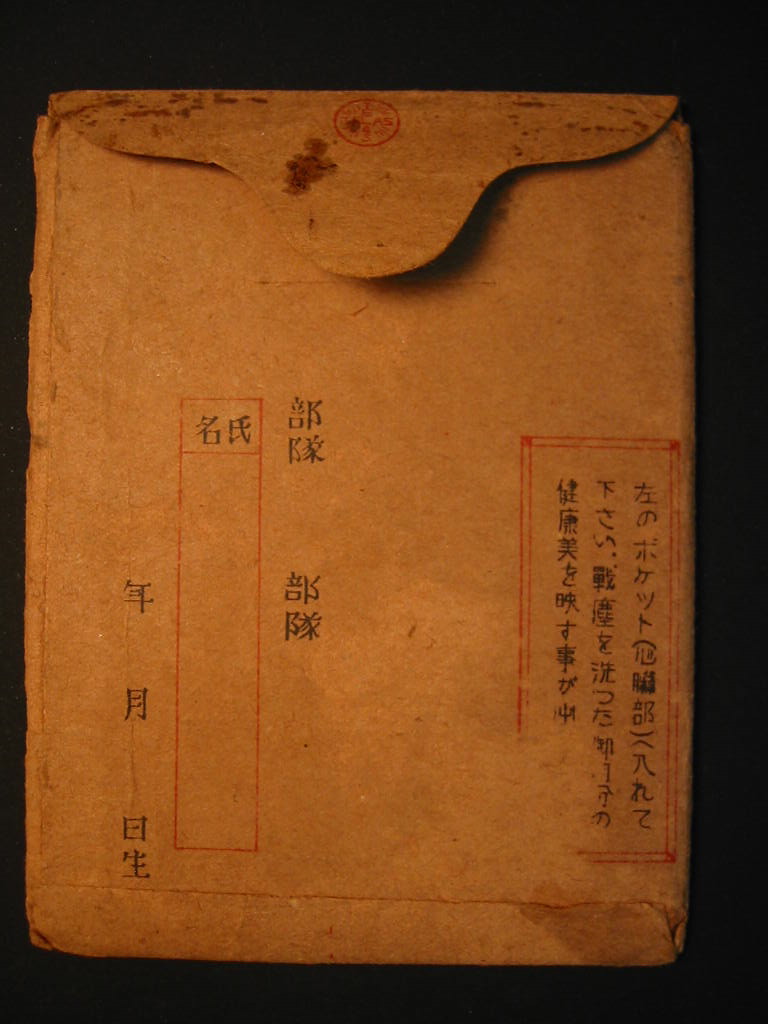 左のポケット(心臓部)へ入れて
下さい、戰塵を洗つた
健康美を映す事が
部隊 部隊
氏名
年 月 日生